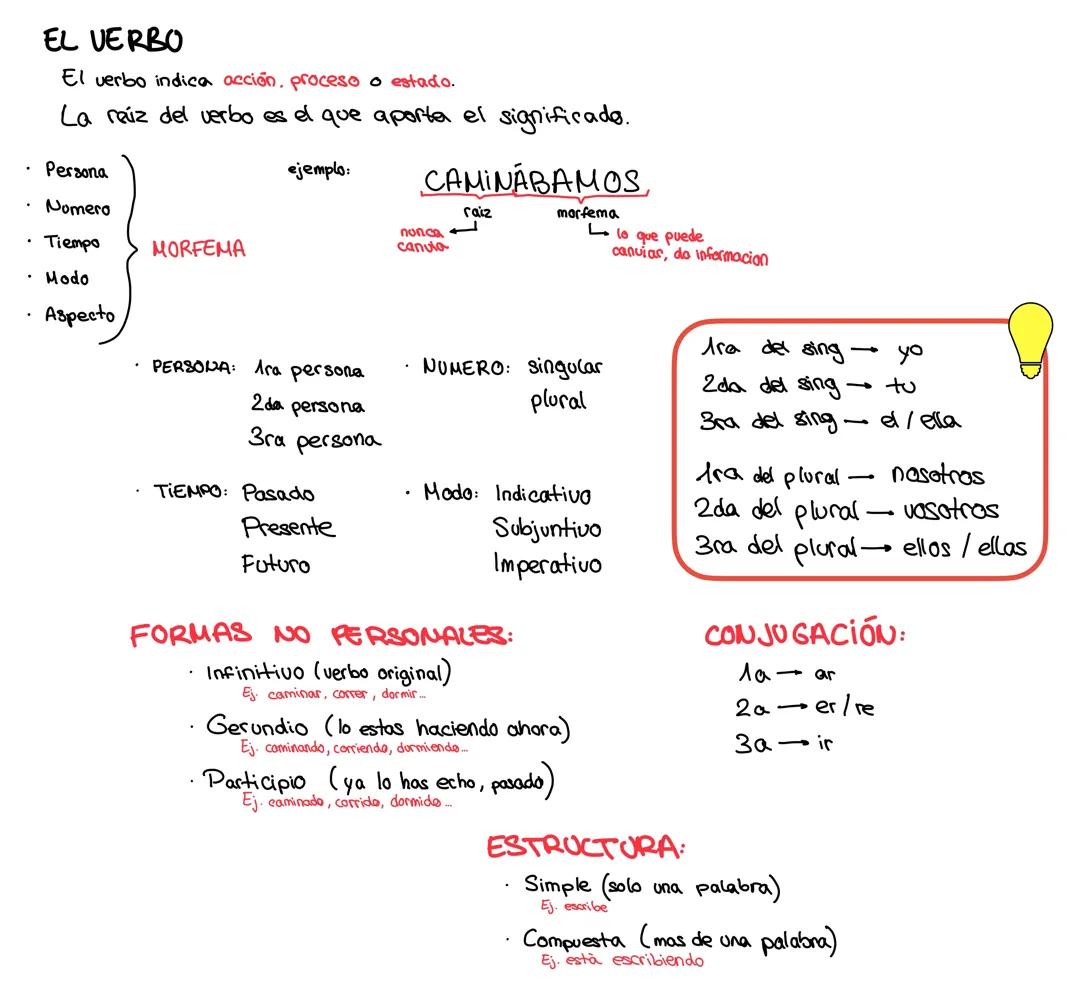 EL VERBO
El verbo indica acción, proceso o estado.
La raíz del verbo es el que aporta el significado.
· Persona
· Numero
· Tiempo
· Modo
· Aspecto
MORFEMA
ejemplo:
CAMINÁBAMOS
raiz
morfema
nunca
canvia
lo que puede
canviar, da informacion
· PERSONA: 1ra persona
2da persona
3ra persona
· NUMERO: singular
plural
· TIEMPO: Pasado
Presente
Futuro
· Modo: Indicativo
Subjuntivo
Imperativo
1ra del sing → yo
2da del sing → tu
3ra del sing → el / ella
1ra del plural → nosotros
2da del plural → vosotros
3ra del plural → ellos / ellas
FORMAS NO PERSONALES:
· Infinitivo (verbo original)
Ej. caminar, correr, dormir...
· Gerundio (lo estas haciendo ahora)
Ej. caminando, corriendo, durmiendo...
· Participio (ya lo has echo, pasado)
Ej. caminado, corrido, dormido...
CONJUGACIÓN:
1a → ar
2a → er / re
3a → ir
ESTRUCTURA:
· Simple (solo una palabra)
Ej. escribe
· Compuesta (mas de una palabra)
Ej. està escribiendo